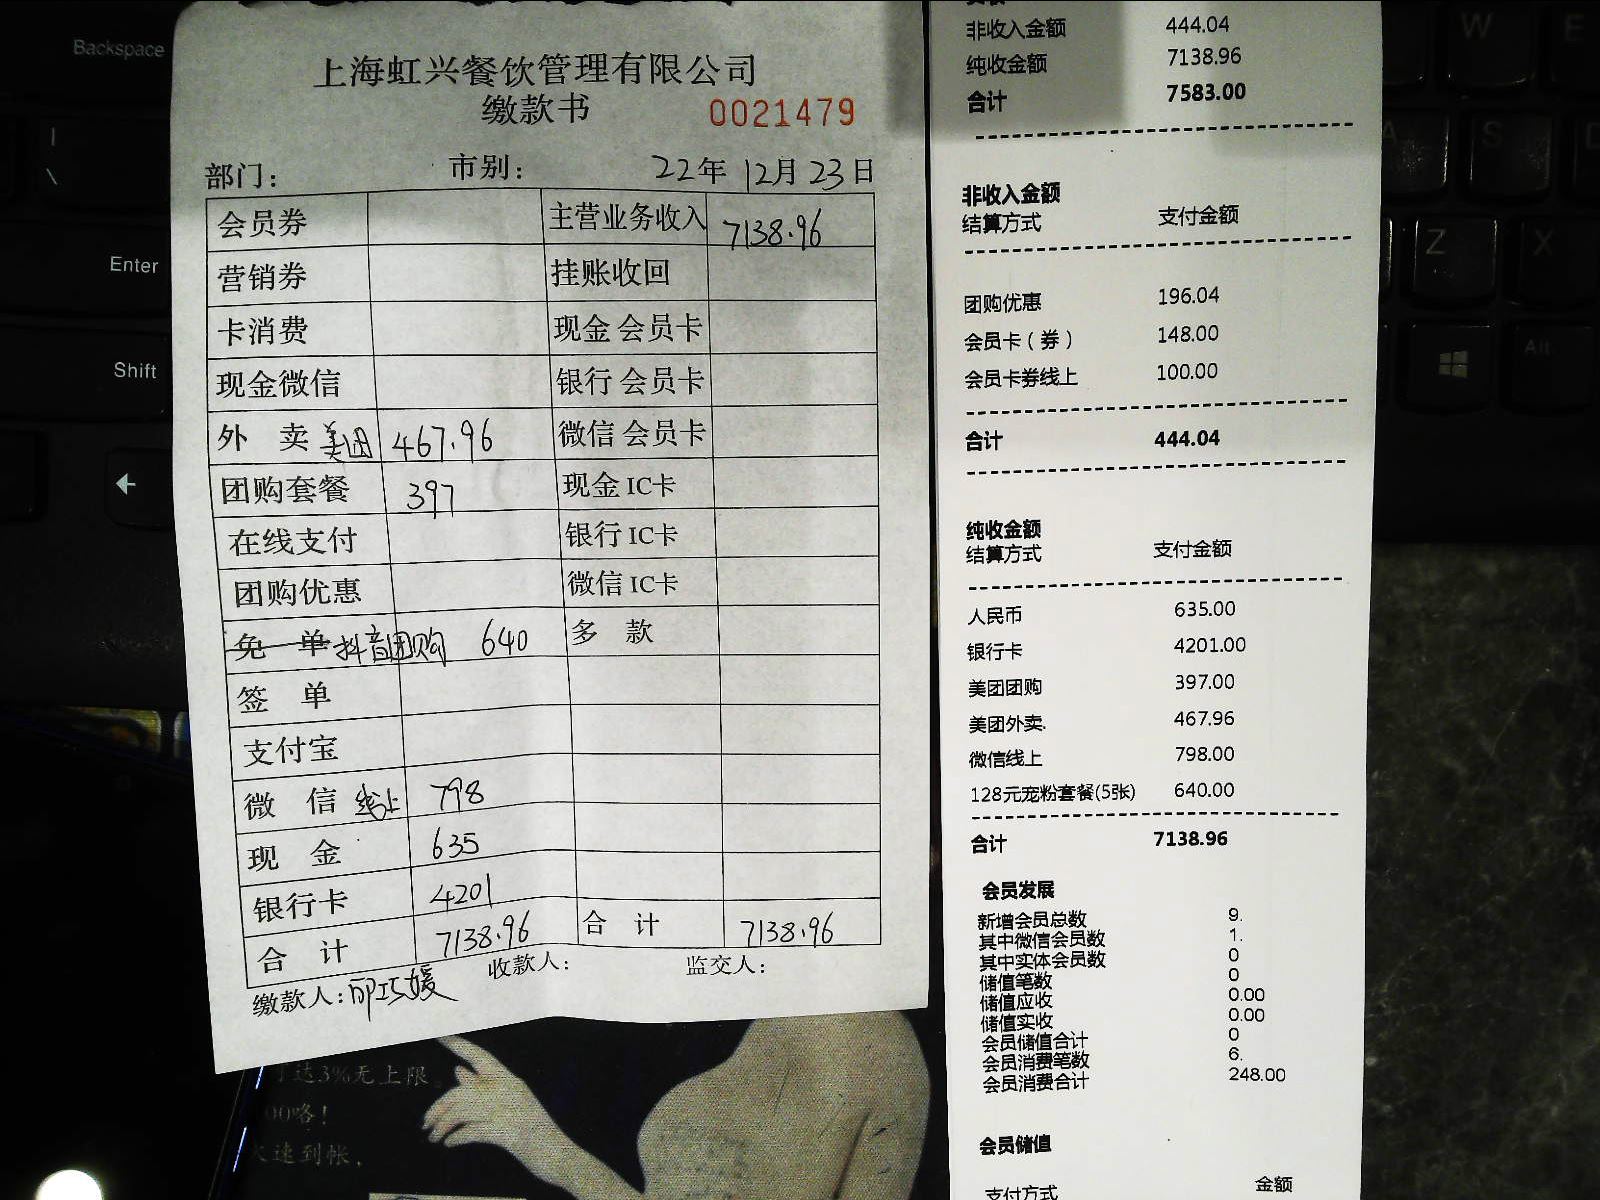 Backspace
Enter
Shift
上海虹兴餐饮管理有限公司
缴款书 0021479
部门： 市别： 22年 12月 23日
会员券 主营业务收入 7138.96
营销券 挂账收回
卡消费 现金 会员卡
现金微信 银行 会员卡
外 卖 美团 467.96 微信 会员卡
团购套餐 397 现金 IC卡
在线支付 银行 IC卡
团购优惠 微信 IC卡
免 单 抖音团购 640 多 款
签 单
支付宝
微 信 线上 798
现 金 635
银行卡 4201
合 计 7138.96 合 计 7138.96
缴款人： 收款人： 监交人：
达3%无上限
00咯！
速到帐，
非收入金额 444.04
纯收金额 7138.96
合计 7583.00
非收入金额
结算方式 支付金额
团购优惠 196.04
会员卡（券） 148.00
会员卡券线上 100.00
合计 444.04
纯收金额
结算方式 支付金额
人民币 635.00
银行卡 4201.00
美团团购 397.00
美团外卖. 467.96
微信线上 798.00
128元宠粉套餐(5张) 640.00
合计 7138.96
会员发展
新增会员总数 9.
其中微信会员数 1.
其中实体会员数 0
储值笔数 0
储值应收 0.00
储值实收 0.00
会员储值合计 0
会员消费笔数 6.
会员消费合计 248.00
会员储值
支付方式 金额
W
E
A
S
D
Z
X
Alt